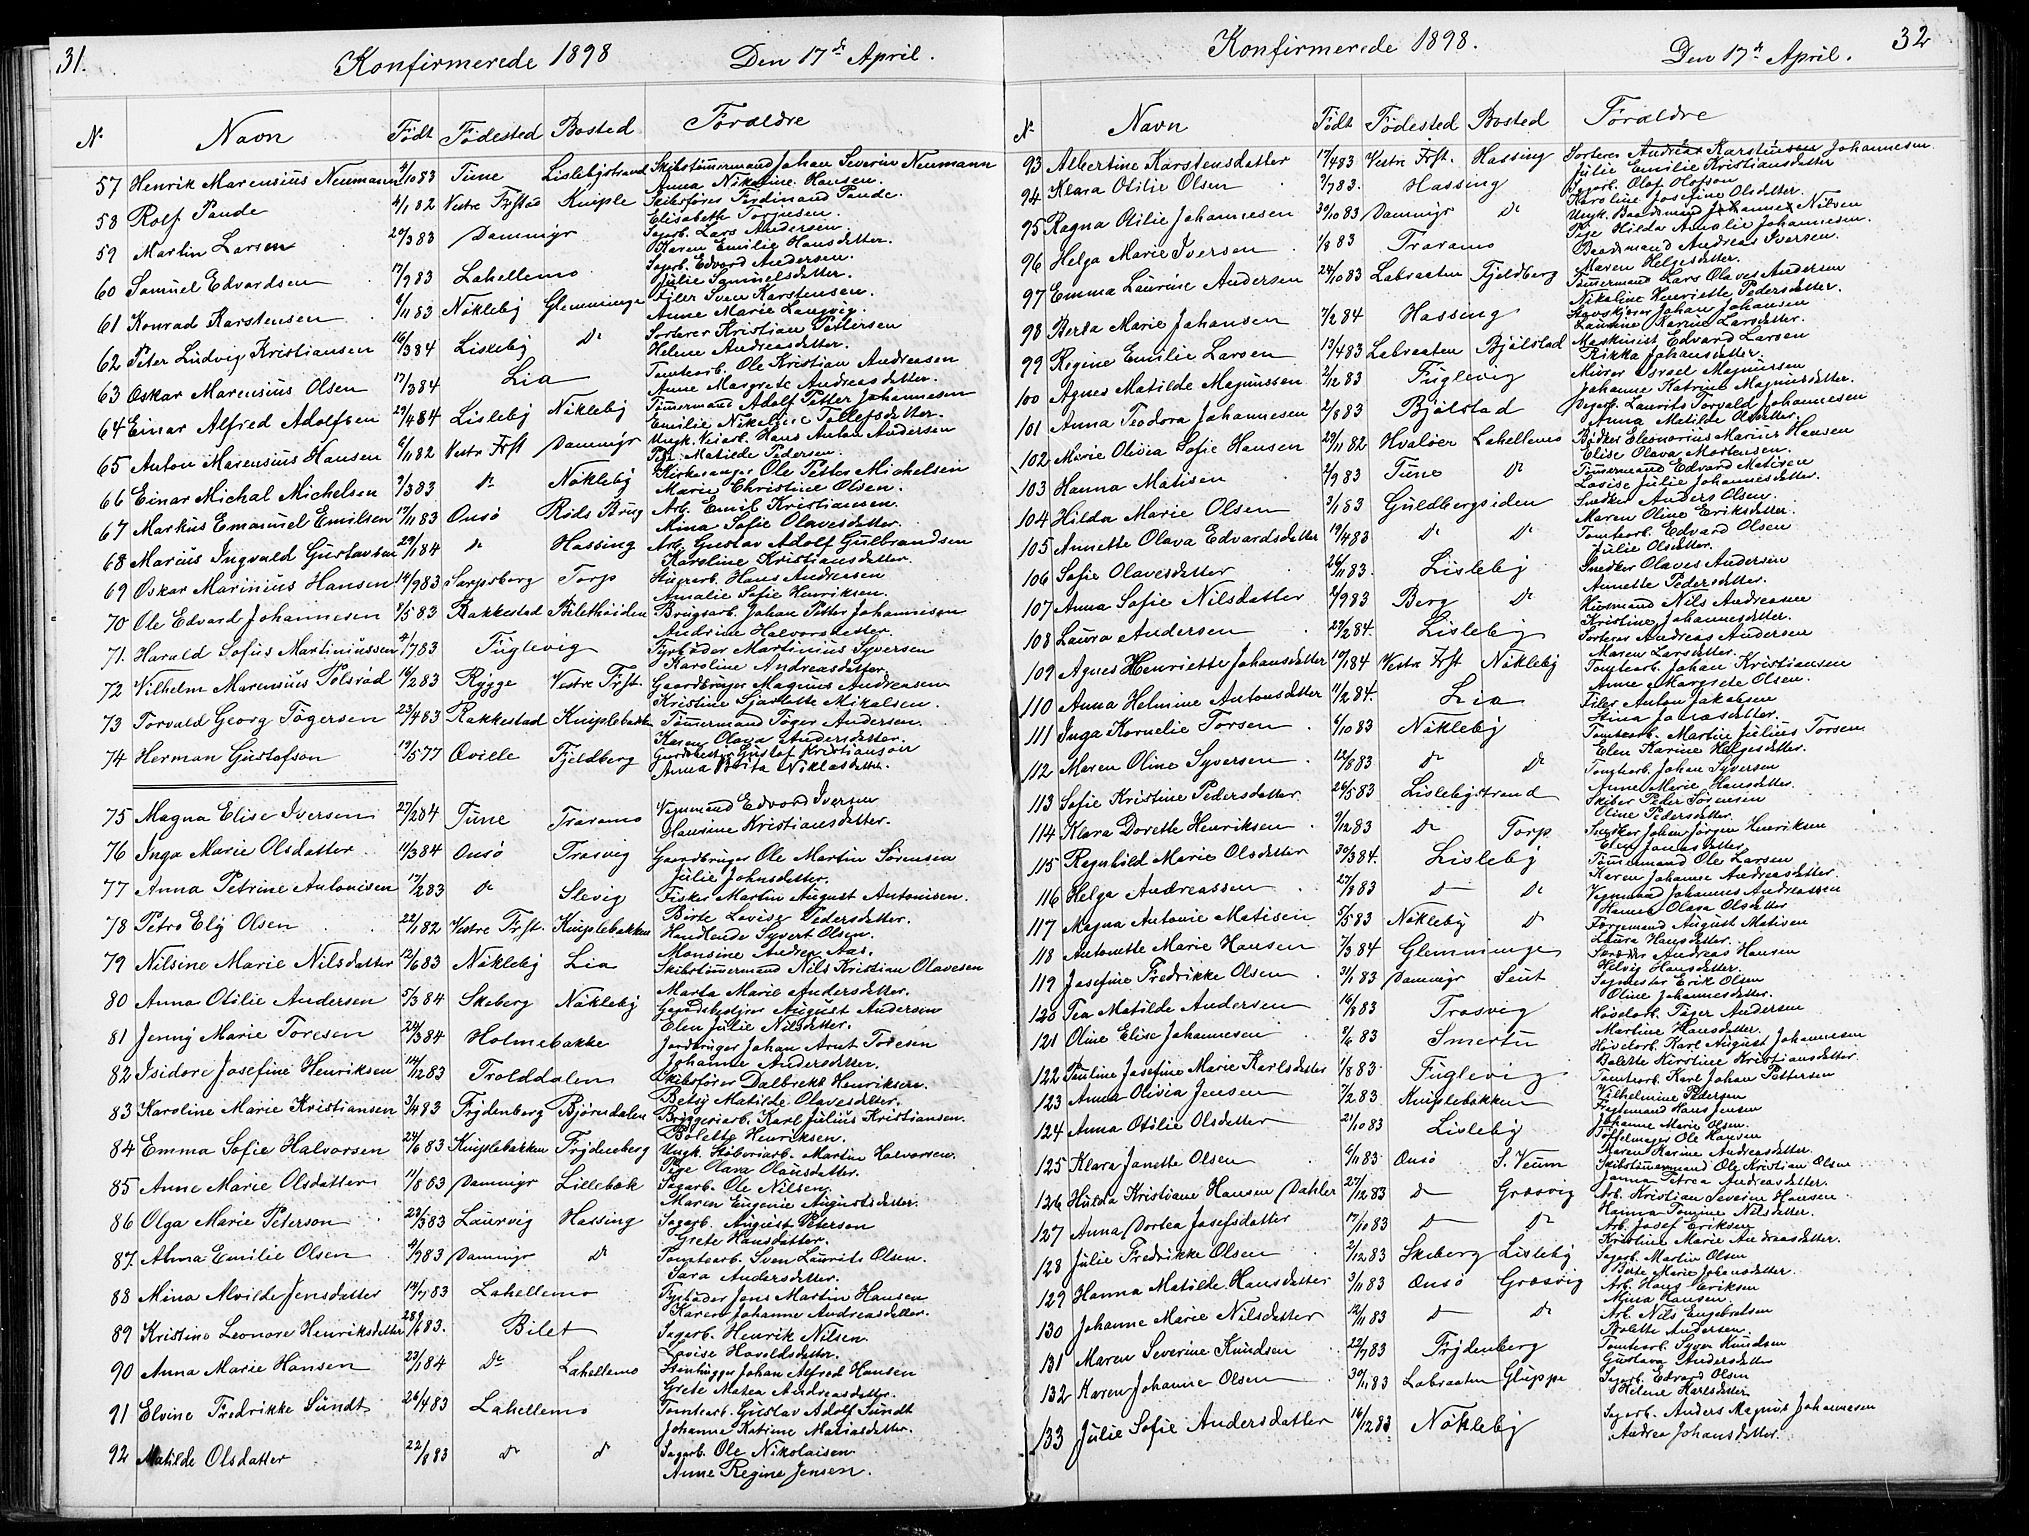 31.
Konfirmerede 1898 Den 17de April.
No Navn Födt Födested Bosted Foraldre
57 Henrik Marensius Neumann 4/10 83 Tune Lislebystrand Skibstömermand Johan Severin Neumann
Anna Nikoline Hansen.
58 Rolf Pande 4/1 82 Vestre Frstad Kniple Skibsförer Ferdinand Pande.
Elisabeth Torjusen.
59 Martin Larsen 20/3 83 Dammyr Sagarb. Lars Andersen.
Karen Emilie Hansdatter.
60 Samuel Edvardsen 17/9 83 Lahellemo Sagarb. Edvard Andersen.
Julie Samuelsdatter.
61 Konrad Karstensen 6/11 83 Nökleby Glemminge Filer Sven Karstensen.
Anne Marie Langvig.
62 Peter Ludvig Kristiansen 16/3 84 Lisleby do Sorterer Kristian Pettersen
Helene Andreasdatter.
63 Oskar Marensius Olsen 17/3 84 Lia Tomtearb. Ole Kristian Andreasen
Anne Margrete Andreasdatter.
64 Einar Alfred Adolfsen 29/1 84 Lisleby Nökleby Tömermand Adolf Petter Johannesen
Emilie Nikoline Tollefsdatter.
65 Anton Marensius Hansen 6/11 82 Vestr Frst Dammyr Ungk. Veiarb. Hans Anton Andersen
Pge. Matilde Pedersen.
66 Einar Michal Michelsen 3/3 83 do Nökleby Kirkesanger Ole Petter Michelsen
Marie Christine Olsen.
67 Markus Emanuel Emilsen 17/11 83 Onsö Röds Brug Arb. Emil Kristiansen.
Mina Sofie Olavesdatter.
68 Marius Ingvald Gustavsen 29/1 84 do Hassing Arb. Gustav Adolf Gulbrandsen
Karoline Kristiansdatter.
69 Oskar Marinius Hansen 14/9 83 Sarpsborg Torp Stuerarb. Hans Andersen
Amalie Sofie Henriksen.
70 Ole Edvard Johannesen 7/5 83 Rakkestad Bilethöiden Brugsarb. Johan Petter Johannesen
Andrine Halvorsdatter.
71. Harald Sofus Martiniussen 4/7 83 Fuglevig Fyrböder Martinius Syversen
Karoline Andreasdatter.
72 Vilhelm Marensius Polsröd 16/2 83 Rygge Vestre Frst. Gaardbruger Magnus Andreasen
Kristine Sjarlotte Mikalsen.
73 Torvald Georg Tögersen 23/4 83 Rakkestad Kniplebakken Tömermand Töger Andersen.
Karen Olava Andersdatter.
74 Herman Gustafson 19/5 77 Qville Fjeldberg Gustaf Kristiansön
Anna Brita Niklasdatter.
75 Magna Elise Iversen 27/2 84 Tune Traramo Vognmand Edvard Iversen
Hansine Kristiansdatter.
76 Inga Marie Olsdatter 11/3 84 Onsö Trosvig Gaardbruger Ole Martin Sörensen
Julie Johnsdatter.
77 Anna Petrine Antonisen 17/2 83 do Slevig Fisker Martin August Antonisen.
Birte Lovise Pedersdatter.
78 Petra Ely Olsen 22/1 82 Vestre Frst. Kniplebakken Handlende Syvert Olsen.
Monsine Andrea Aas.
79 Nilsine Marie Nilsdatter 12/6 83 Nökleby Lia Skibstömermand Nils Kristian Olavesen
Marta Marie Andersdatter.
80 Anna Otilie Andersen 5/3 84 Skeberg Nökleby Gaardsbestyrer August Andersen
Elen Julie Nilsdatter.
81 Jenny Marie Toresen 24/3 84 Holmebakke Jordbruger Johan Arnt Toresen
Johanne Andersdatter.
82 Isidore Josefine Henriksen 14/12 83 Trolddalen Skibsförer Dalbrekt Henriksen.
Betsy Matilde Olavesdatter.
83 Karoline Marie Kristiansen 3/4 83 Frydenberg Björndalen Bryggeriarb. Karl Julius Kristiansen.
Bolette Henriksen.
84 Emma Sofie Halvorsen 24/6 83 Kniplebakken Frydenberg Ungk. Støberiarb. Martin Halvorsen.
Pige Olava Olausdatter.
85 Anne Marie Olsdatter 11/8 83 Dammyr Lillebæk Sagarb. Ole Nilsen.
Maren Eugenie Augustsdatter.
86 Olga Marie Peterson 23/5 83 Laurvig Hassing Sagarb. August Petersen
Grete Hansdatter.
87. Alma Emilie Olsen 4/9 83 Dammyr do Tomtearb. Sven Laurits Olsen.
Sara Andersdatter.
88 Mina Alvilde Jensdatter 14/7 83 Lahellemo Fyrböder Jens Martin Hansen
Karen Johanne Andreasdatter.
89 Kristine Leonore Henriksdatter 28/6 83. Bilet Sagarb. Henrik Nilsen.
Lovise Haraldsdatter.
90 Anna Marie Hansen 23/1 84 do Lahellemo Stenhugger Johan Alfred Hansen
Grete Matea Andreasdatter.
91 Elvine Fredrikke Sundt 26/4 83 Lahellemo Tomtearb. Gustav Adolf Sundt
Johanne Katrine Matiasdatter.
92 Matilde Olsdatter 22/8 83 do do Sagarb. Ole Nikolaisen
Anne Regine Jensen.
32
Konfirmerede 1898. Den 17de April.
No Navn Födt Födested Bosted Foraldre
93 Albertine Karstensdatter 17/4 83 Vestre Frst. Hassing Sorterer Andreas Karstensen Johannesen
Julie Emilie Kristiansdatter
94 Klara Otilie Olsen 7/7 83. Hassing Sagarb. Olof Olofson
Karoline Josefine Olsdatter.
95 Ragna Otilie Johannesen 30/10 83 Dammyr do Ungk. Baadsmand Johannes Nilsen
Pige Hilda Amalie Johannesen.
96 Helga Marie Iversen 1/8 83 Traramo Baadsmand Andreas Iversen.
Maren Helgesdatter.
97 Emma Laurine Andersen 24/10 83 Labraaten Fjeldberg Tömmermand Lars Olaves Andersen
Nikoline Henriette Pedersdatter.
98 Berta Marie Johansen 7/2 84 Hassing Stavskjører Johan Johansen
Laurine Karine Larsdatter.
99 Regine Emilie Larsen 13/4 83 Labraaten Bjölstad Maskinist Edvard Larsen
Rikka Johansdatter.
100 Agnes Matilde Magnussen 2/12 83 Fuglevig Murer Israel Magnussen
Johanne Katrine Magnusdatter.
101 Anna Teodora Johannesen 2/8 83 Bjölstad Laurits Torvald Johannesen
Anna Matilde Olsdatter.
102 Marie Olivia Sofie Hansen 29/11 82 Hvaloer Lahellemo Bödker Eleonorius Marius Hansen
Elise Olava Mortensen.
103 Hanna Matisen 2/9 83 Tune do Tömmermand Edvard Matisen
Lovise Julie Johannesdatter.
104 Hilda Marie Olsen 3/1 83 Guldbergsiden Snedker Anders Olsen.
Maren Oline Eriksdatter.
105 Annette Olava Edvardsdatter 19/4 83 do do Tomtearb. Edvard Olsen
Julie Olsdatter.
106 Sofie Olavesdatter 26/11 83. Lisleby Snedker Olaves Andersen
Annette Pedersdatter.
107 Anna Sofie Nilsdatter 2/9 83 Berg do Nils Andreasen
Kristine Johannesdatter.
108 Laura Andersen 29/2 84. Lisleby Sorterer Andreas Andersen
Maren Larsdatter.
109 Agnes Henriette Johansdatter 19/1 84 Vestr Frst Nökleby Tomtearb. Johan Kristiansen
Anne Margrete Olsen.
110 Anna Helmine Antonsdatter 11/2 84. Lia Filer Anton Jakobsen
Stina Jonasdatter.
111 Inga Kornelie Torsen 6/10 83 Nökleby Tomtearb. Martin Julius Torsen
Elen Karine Helgesdatter.
112 Maren Oline Syversen 12/8 83 do do Tomtearb. Johan Syversen
Anne Marie Hansdatter.
113 Sofie Kristine Pedersdatter 26/5 83 Lislebystrand Skiber Peder Sörensen
Oline Pedersdatter.
114 Klara Dorette Henriksen 9/12 83 do Torp Snedker Johan Jörgen Henriksen
Elen Jonasdatter
115 Regnhild Marie Olsdatter 30/3 84. Lisleby Tömmermand Ole Larsen
Karen Johanne Andreasdatter.
116 Helga Andreassen 27/8 83 do do Vognmand Johannes Andreassen
Hanna Olava Olsdatter
117 Magna Antonie Matisen 5/5 83 Nökleby do Formand August Matisen
Laura Hansdatter.
118 Antonette Marie Hansen 7/3 84 Glemminge Andreas Hansen
Helvig Hansdatter.
119 Josefine Fredrikke Olsen 31/1 83 Dammyr Seut Sagmester Erik Olsen
Oline Johannesdatter.
120 Tea Matilde Andersen 16/8 83 Trosvig Hövelarb. Töger Andersen
Martine Hansdatter.
121 Oline Elise Johannesen 9/6 83 Smertu Hövelarb. Karl August Johannesen
Bolette Kirstine Kristiansdatter.
122 Pauline Josefine Marie Karlsdatter 1/8 83 Fuglevig Tomtearb. Karl Johan Pettersen
Vilhelmine Pedersen
123 Anna Olivia Jensen 7/2 83 Kniplebakken Hans Jensen
Johanne Marie Olsen.
124 Anna Otilie Olsdatter 21/10 83 Lisleby Töffelmager Ole Hansen
Maren Karine Andreasdatter.
125 Klara Janette Olsen 6/11 83 Onsö S. Veum Skibstömermand Ole Kristian Olsen
Janna Petrea Andreasdatter.
126 Hulda Kristiane Hansen Dahler 27/12 83 do Græsvig Arb. Kristian Severin Hansen
Hanna Tomine Nilsdatter.
127 Anna Dortea Josefsdatter 17/10 83 do do Arb. Josef Eriksen
Kristine Marie Andreasdatter.
128 Julie Fredrikke Olsen 2/12 83 Skeberg Lisleby Sagarb. Martin Olsen
Berte Marie Johansdatter.
129 Hanna Matilde Hansdatter 3/11 83 Onsö Græsvig Arb. Hans Eriksen
Mina Hansen.
130 Johanne Marie Nilsdatter 12/11 83 do do Arb. Nils Engebretsen
Bolette Andersen.
131 Maren Severine Knudsen 22/7 83 Frydenberg Tomtearb. Syver Knudsen
Gustava Andersdatter
132 Karen Johanne Olsen 30/11 83 Labraaten Gluppe Sagarb. Edvard Olsen
Helene Karlsdatter
133 Julie Sofie Andersdatter 16/12 83 Nökleby Sagarb. Anders Magnus Johannesen
Andrea Johansdatter.